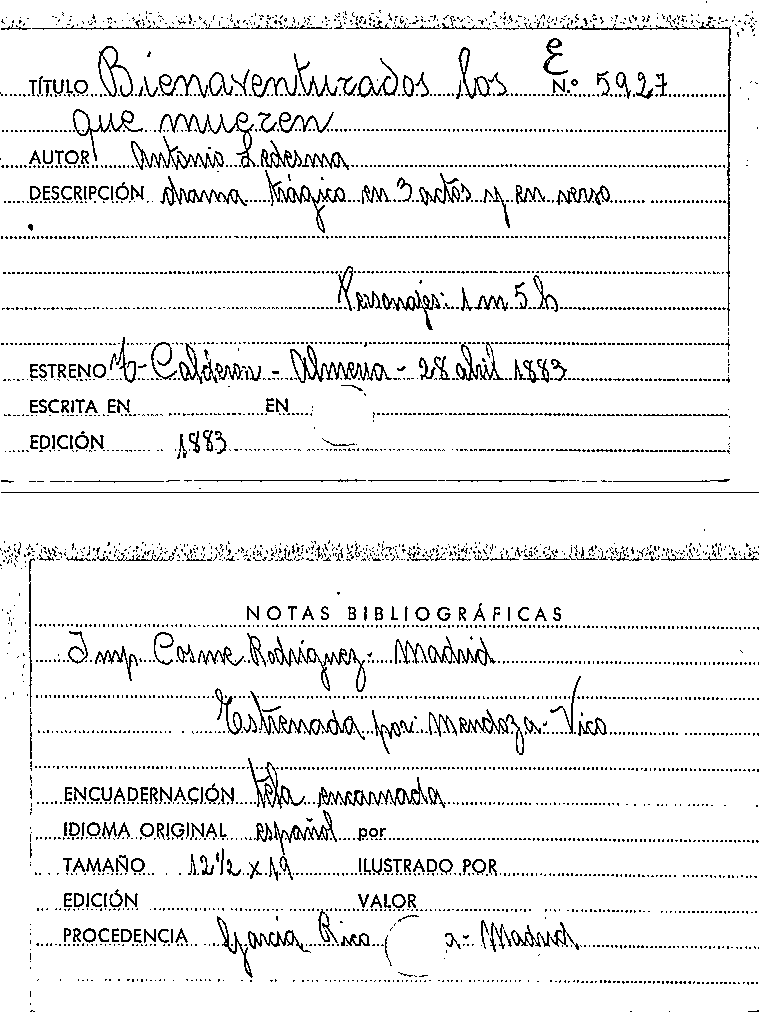 E
TÍTULO Bienaventurados los N.º 5927
que mueren
AUTOR Antonio Ledesma
DESCRIPCIÓN drama trágico en 3 actos y en verso
Personajes: 1 m 5 h
ESTRENO T- Calderón - Almería - 28 abril 1883
ESCRITA EN EN
EDICIÓN 1883
NOTAS BIBLIOGRÁFICAS
Imp Cosme Rodríguez - Madrid
Estrenada por: Mendoza - Vico
ENCUADERNACIÓN tela encarnada
IDIOMA ORIGINAL español por
TAMAÑO 12 1/2 x 19 ILUSTRADO POR
EDICIÓN VALOR
PROCEDENCIA García Rico a - Madrid